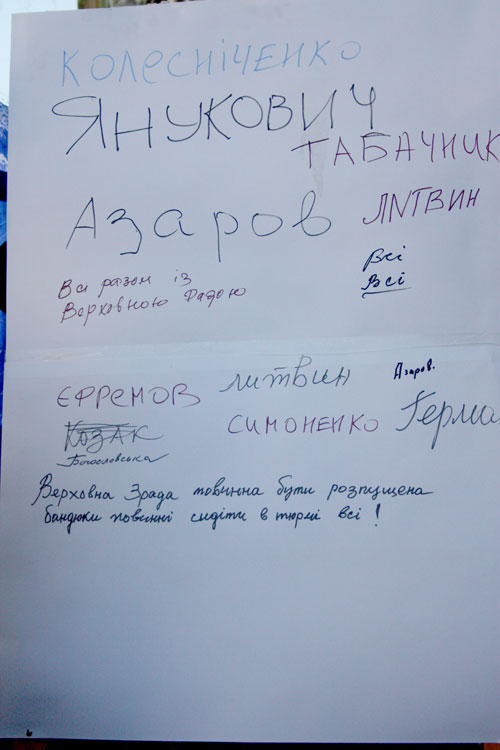 КОЛЕСНІЧЕНКО
ЯНУКОВИЧ
ТАБАЧНИК
Азаров
ЛИТВИН
Всі разом із
Верховною Радою
Всі
Всі
ЄФРЕМОВ
ЛИТВИН
Азаров.
КОЗАК
СИМОНЕНКО
Герма
Богословська
Верховна Зрада повинна бути розпущена
бандюки повинні сидіти в тюрмі всі!